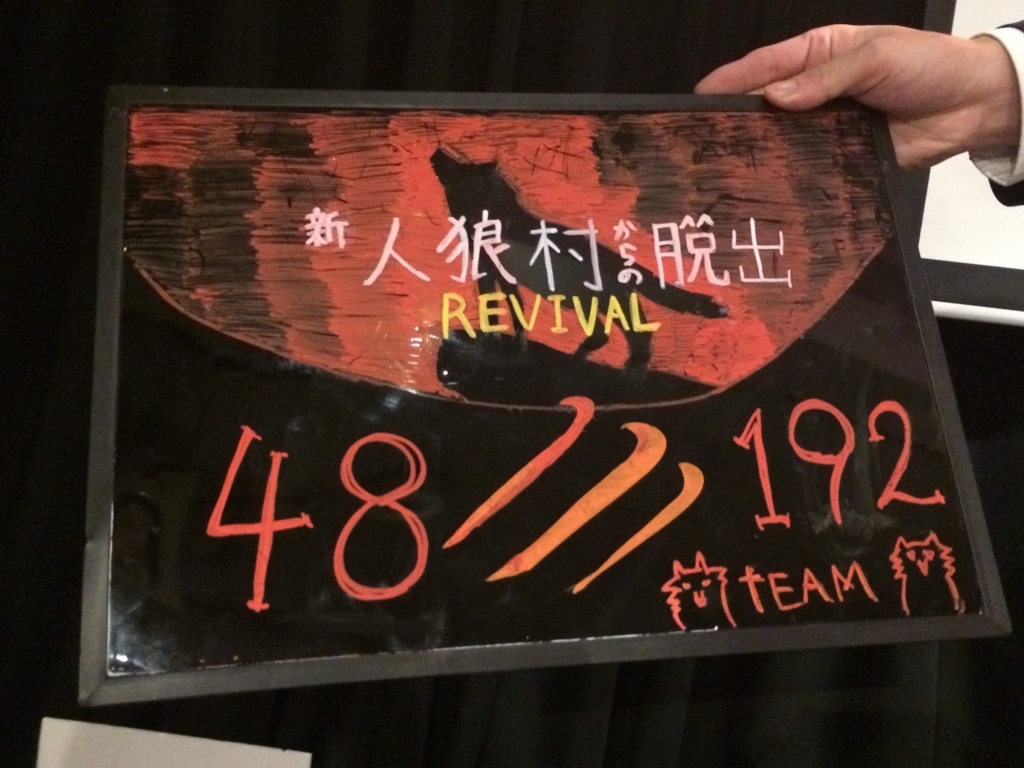 新 人狼村からの脱出
REVIVAL
48 192
tEAM